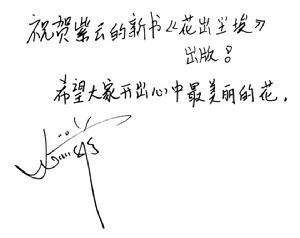 祝贺紫云的新书《花出尘埃》
出版！
希望大家开出心中最美丽的花．